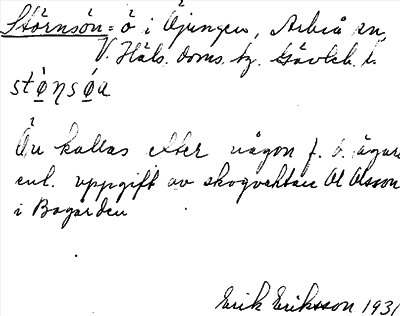 Störnsön = ö i Öjungen, Arbrå sn,
V. Häls. doms. hg. Gävleb. l.
stǿŋsǿa
Ön kallas efter någon f. d. ägare
enl. uppgift av skogvaktare Ol Olsson
i Bogården
Erik Eriksson 1931